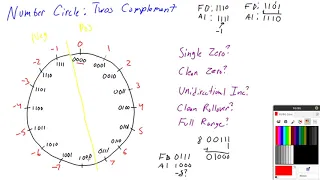 Number Circle: Twos Complement
FD: 1110
A1: 1111
-1
FD: 1101
A1: 1110
Neg
Pos
-1
0
1
1111
0000
0001
-2
1110
0010
2
-3
1101
3
-4
1100
0100
4
-5
1011
5
-6
1010
0110
6
-7
1001
1000
0111
7
-8
Single Zero?
Clean Zero?
Unidirectional Inc?
Clean Rollover?
Full Range?
8 00111
1
01000
FD 0111
A1 1000
-8?